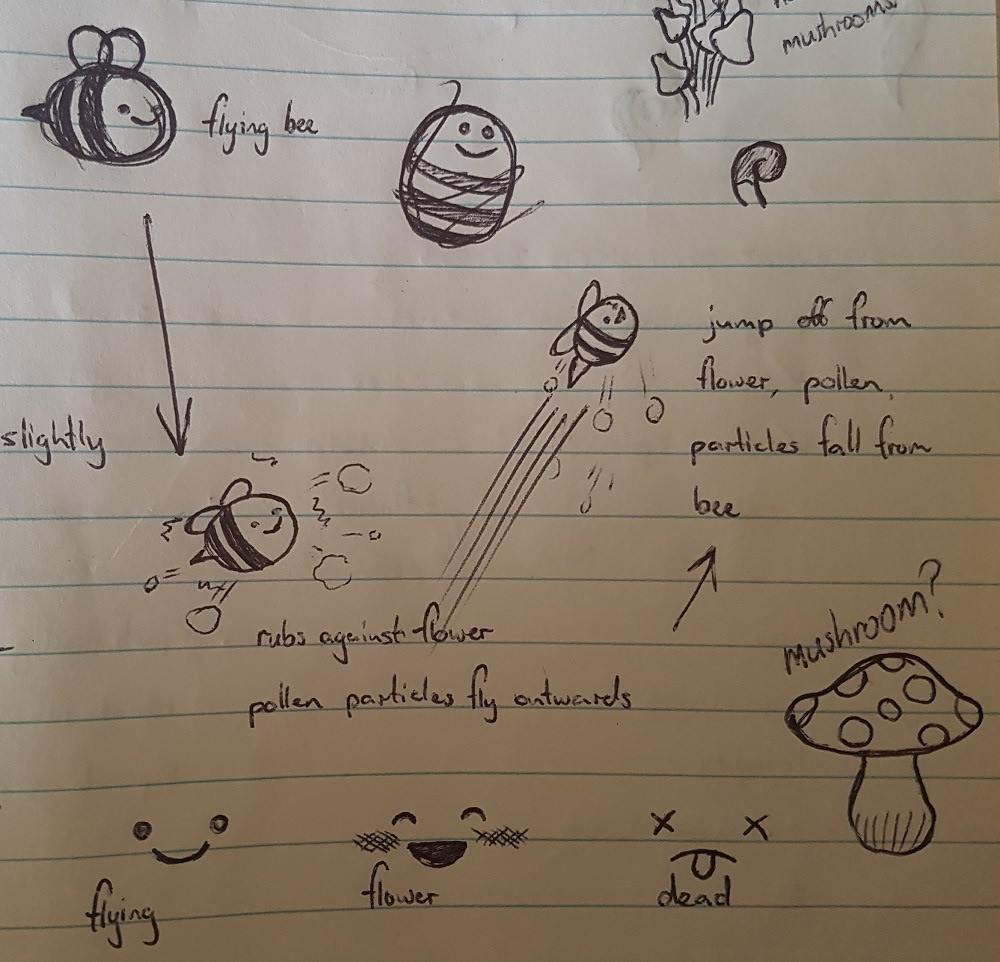 mushrooms
flying bee
jump off from
flower, pollen
particles fall from
bee
slightly
rubs against flower
pollen particles fly outwards
mushroom?
flying
flower
dead